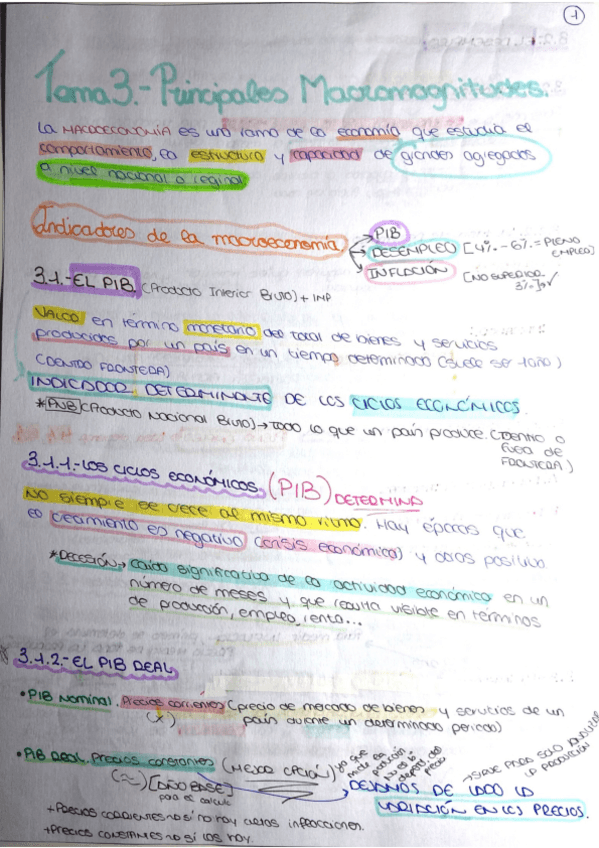 1
Tema 3.- Principales Macromagnitudes.
La MACROECONOMÍA es una rama de la economía que estudia el
comportamiento, la estructura y capacidad de grandes agregados
a nivel nacional o reginal
Indicadores de la macroeconomía
PIB
DESEMPLEO [4% - 6% = PLENO EMPLEO]
INFLACIÓN [NO SUPERIOR 3%]
3.1.- EL PIB. (Producto Interior Bruto) + IMP
VALOR en término monetario del total de bienes y servicios
producidos por un país en un tiempo determinado (suele ser 1 año)
(DENTRO FRONTERA)
INDICADOR DETERMINANTE DE LOS CICLOS ECONÓMICOS.
*PNB (Producto Nacional Bruto) → TODO lo que un país produce. (DENTRO O FUERA DE FRONTERA)
3.1.1.- LOS CICLOS ECONÓMICOS (PIB) DETERMINA
NO siempre se crece al mismo ritmo. Hay épocas que
el crecimiento es negativo (crisis económica) y otros positivo
*RECESIÓN → caída significativa de la actividad económica en un
número de meses y que resulta visible en términos
de producción, empleo, renta...
3.1.2.- EL PIB REAL
• PIB Nominal. Precios corrientes (precio de mercado de bienes y servicios de un
país durante un determinado periodo)
• PIB REAL. Precios constantes (MEJOR OPCIÓN) ya que mide la producción
(≈) [AÑO BASE]
para el calculo
→ SIRVE PARA SOLO ANALIZAR LA PRODUCCIÓN
DEJAMOS DE LADO LA
VARIACIÓN EN LOS PRECIOS.
+ PRECIOS CORRIENTES → si no hay
+ PRECIOS CONSTANTES → si los hay.